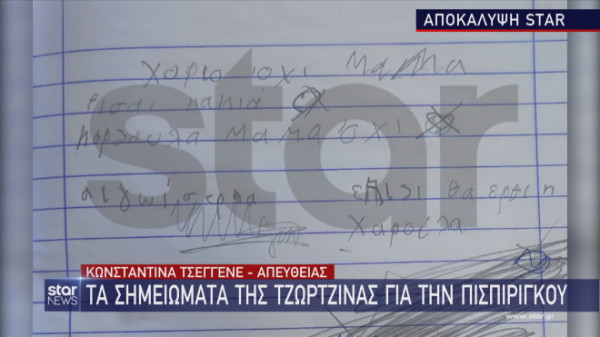 ΑΠΟΚΑΛΥΨΗ STAR
χορισ όχι μαμα
είσαι κακιά
καρδούλα μαμα όχι
star
θα ερθι η
Χαρούλα
ΚΩΝΣΤΑΝΤΙΝΑ ΤΣΕΓΓΕΝΕ - ΑΠΕΥΘΕΙΑΣ
star
NEWS
ΤΑ ΣΗΜΕΙΩΜΑΤΑ ΤΗΣ ΤΖΩΡΤΖΙΝΑΣ ΓΙΑ ΤΗΝ ΠΙΣΠΙΡΙΓΚΟΥ
www.star.gr